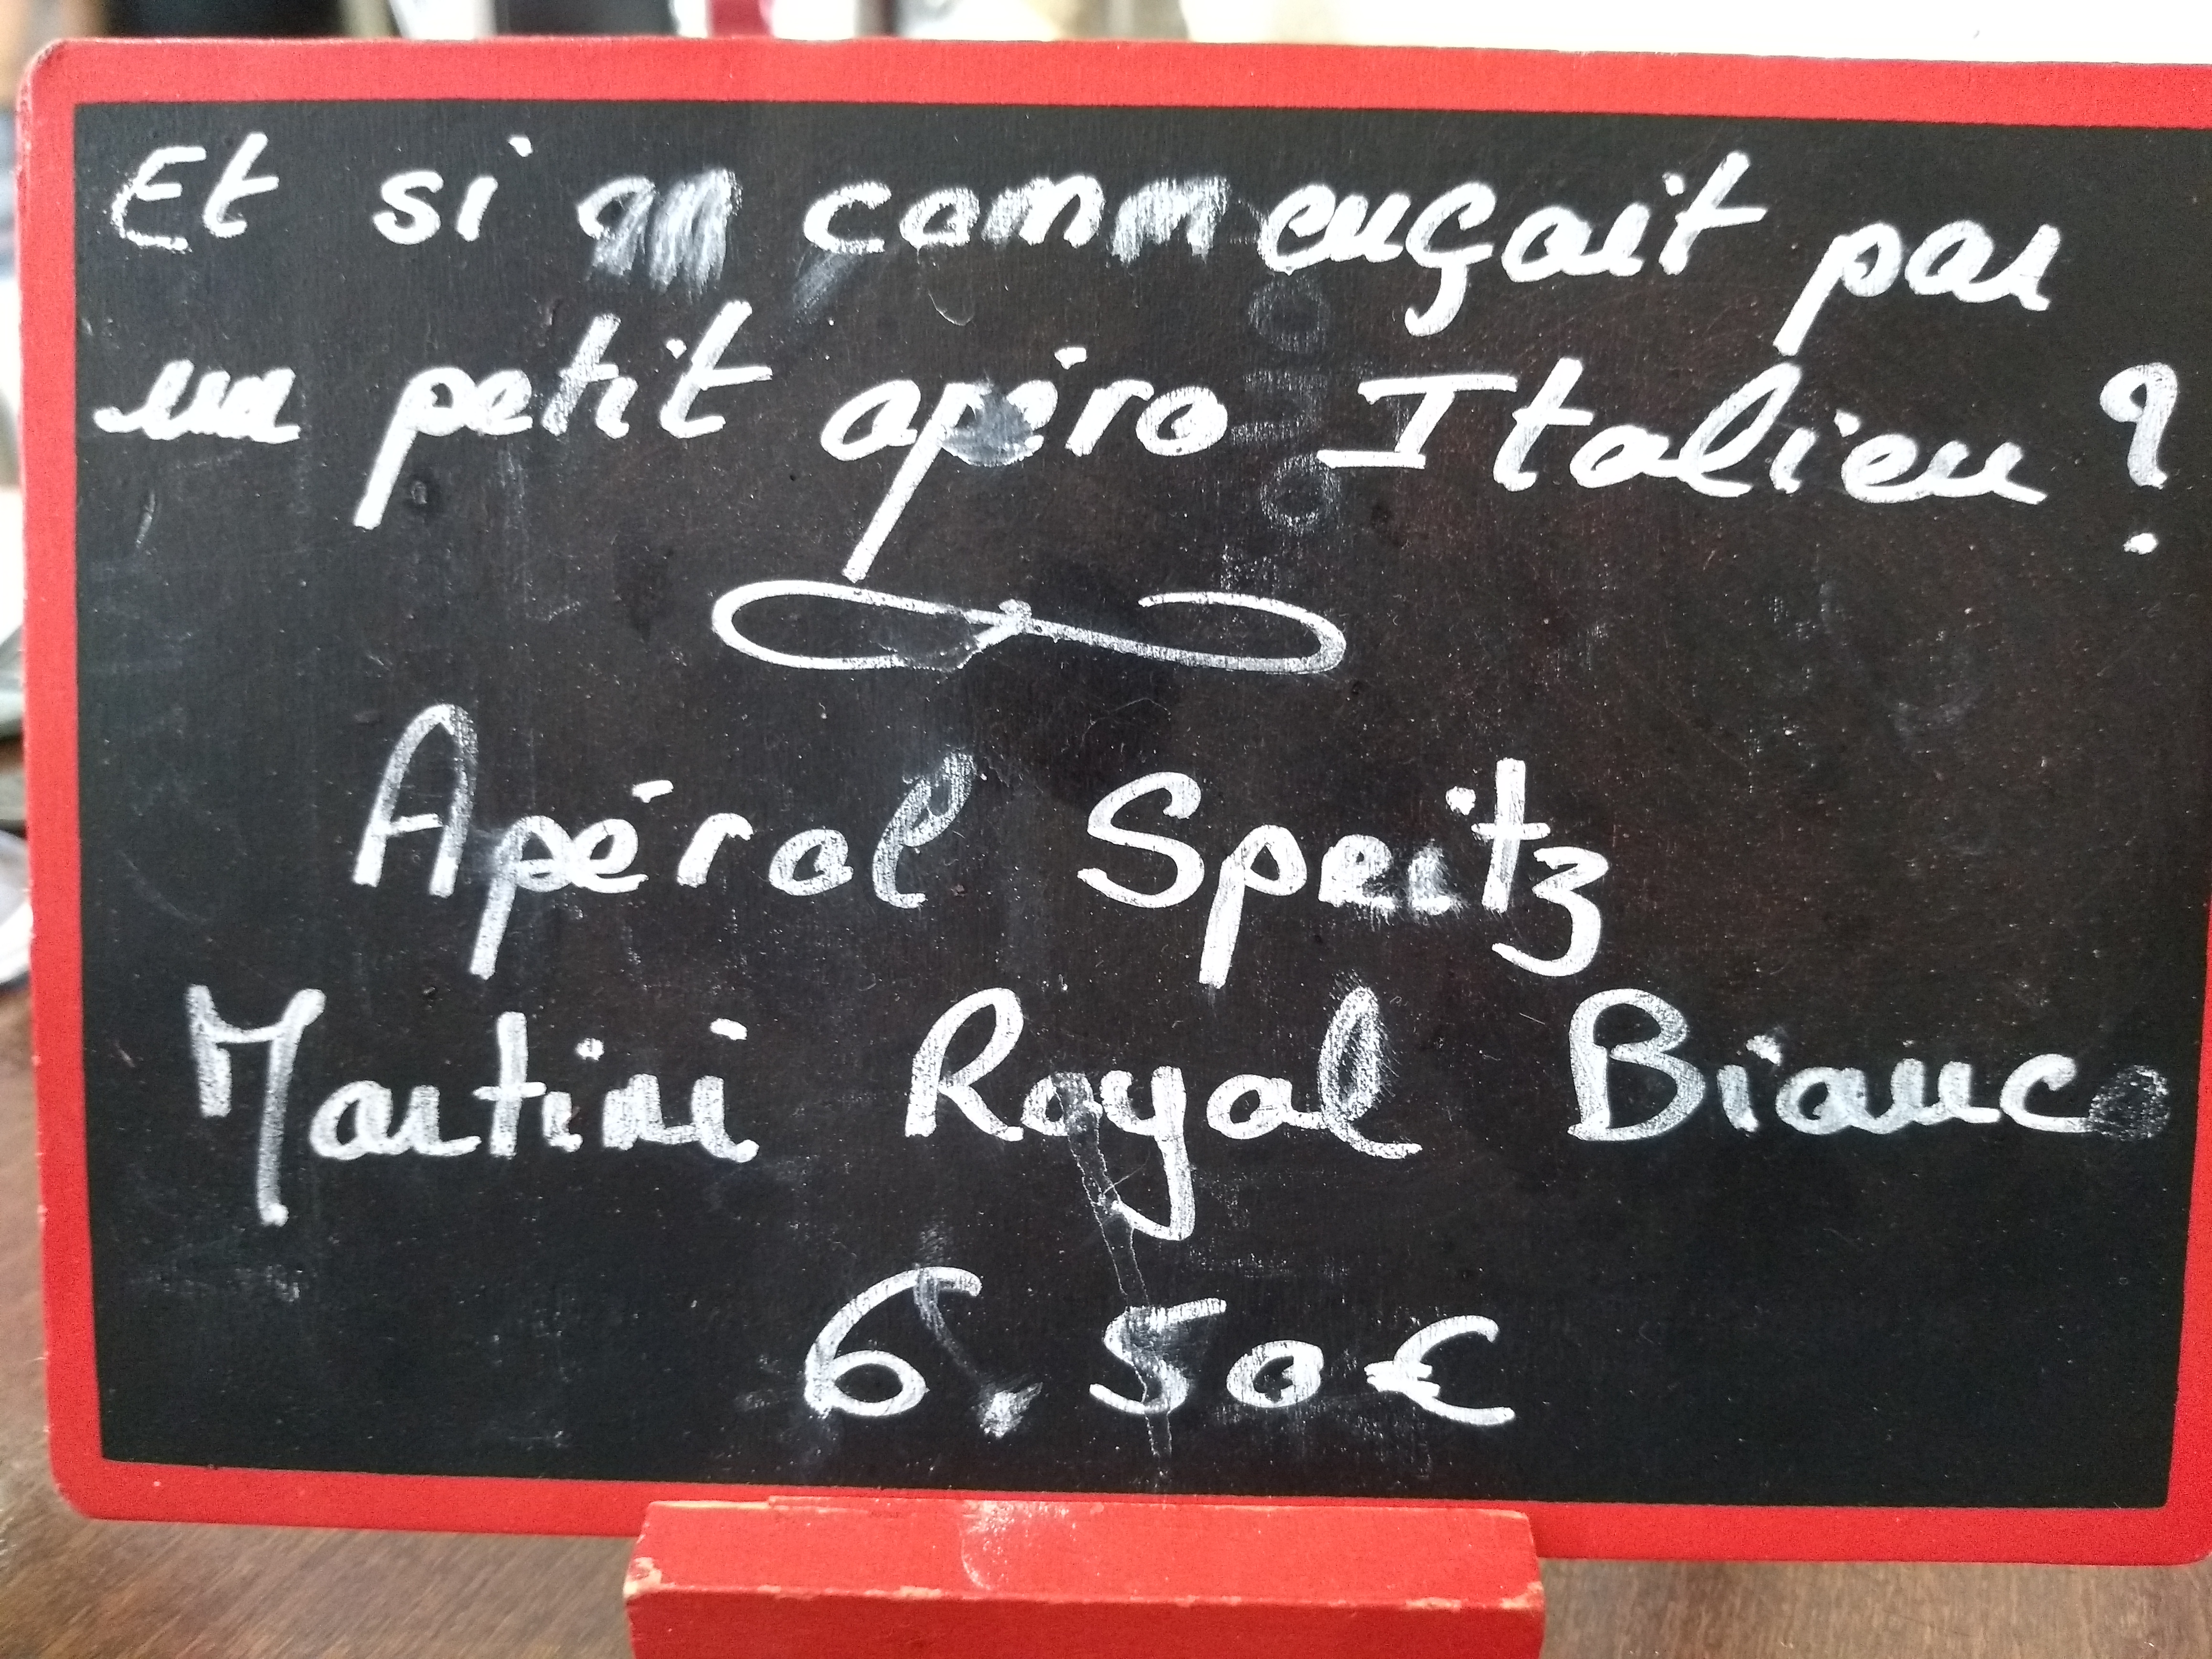 Et si on commençait par
un petit apéro Italien ?
Apéral Spritz
Martini Royal Bianco
6.50€